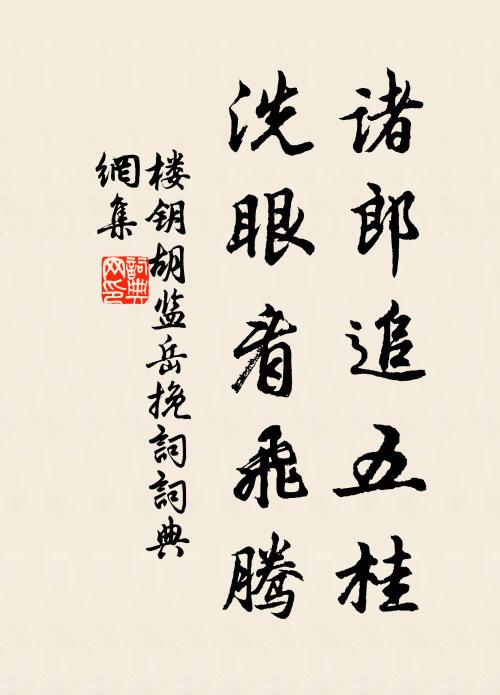 诸郎追五桂
洗眼看飞腾
楼钥胡监岳挽詞詞典
網集
詞典
网印